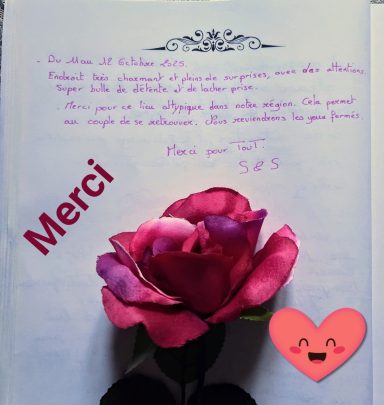 - Du 11 au 12 Octobre 2025.
Endroit très charmant et pleins de surprises, avec des attentions.
Super bulle de détente et de lacher prise.
. Merci pour ce lieu attypique dans notre région. Cela permet
au couple de se retrouver. Nous reviendrons les yeux fermés.
Merci pour Tout!
S & S
Merci